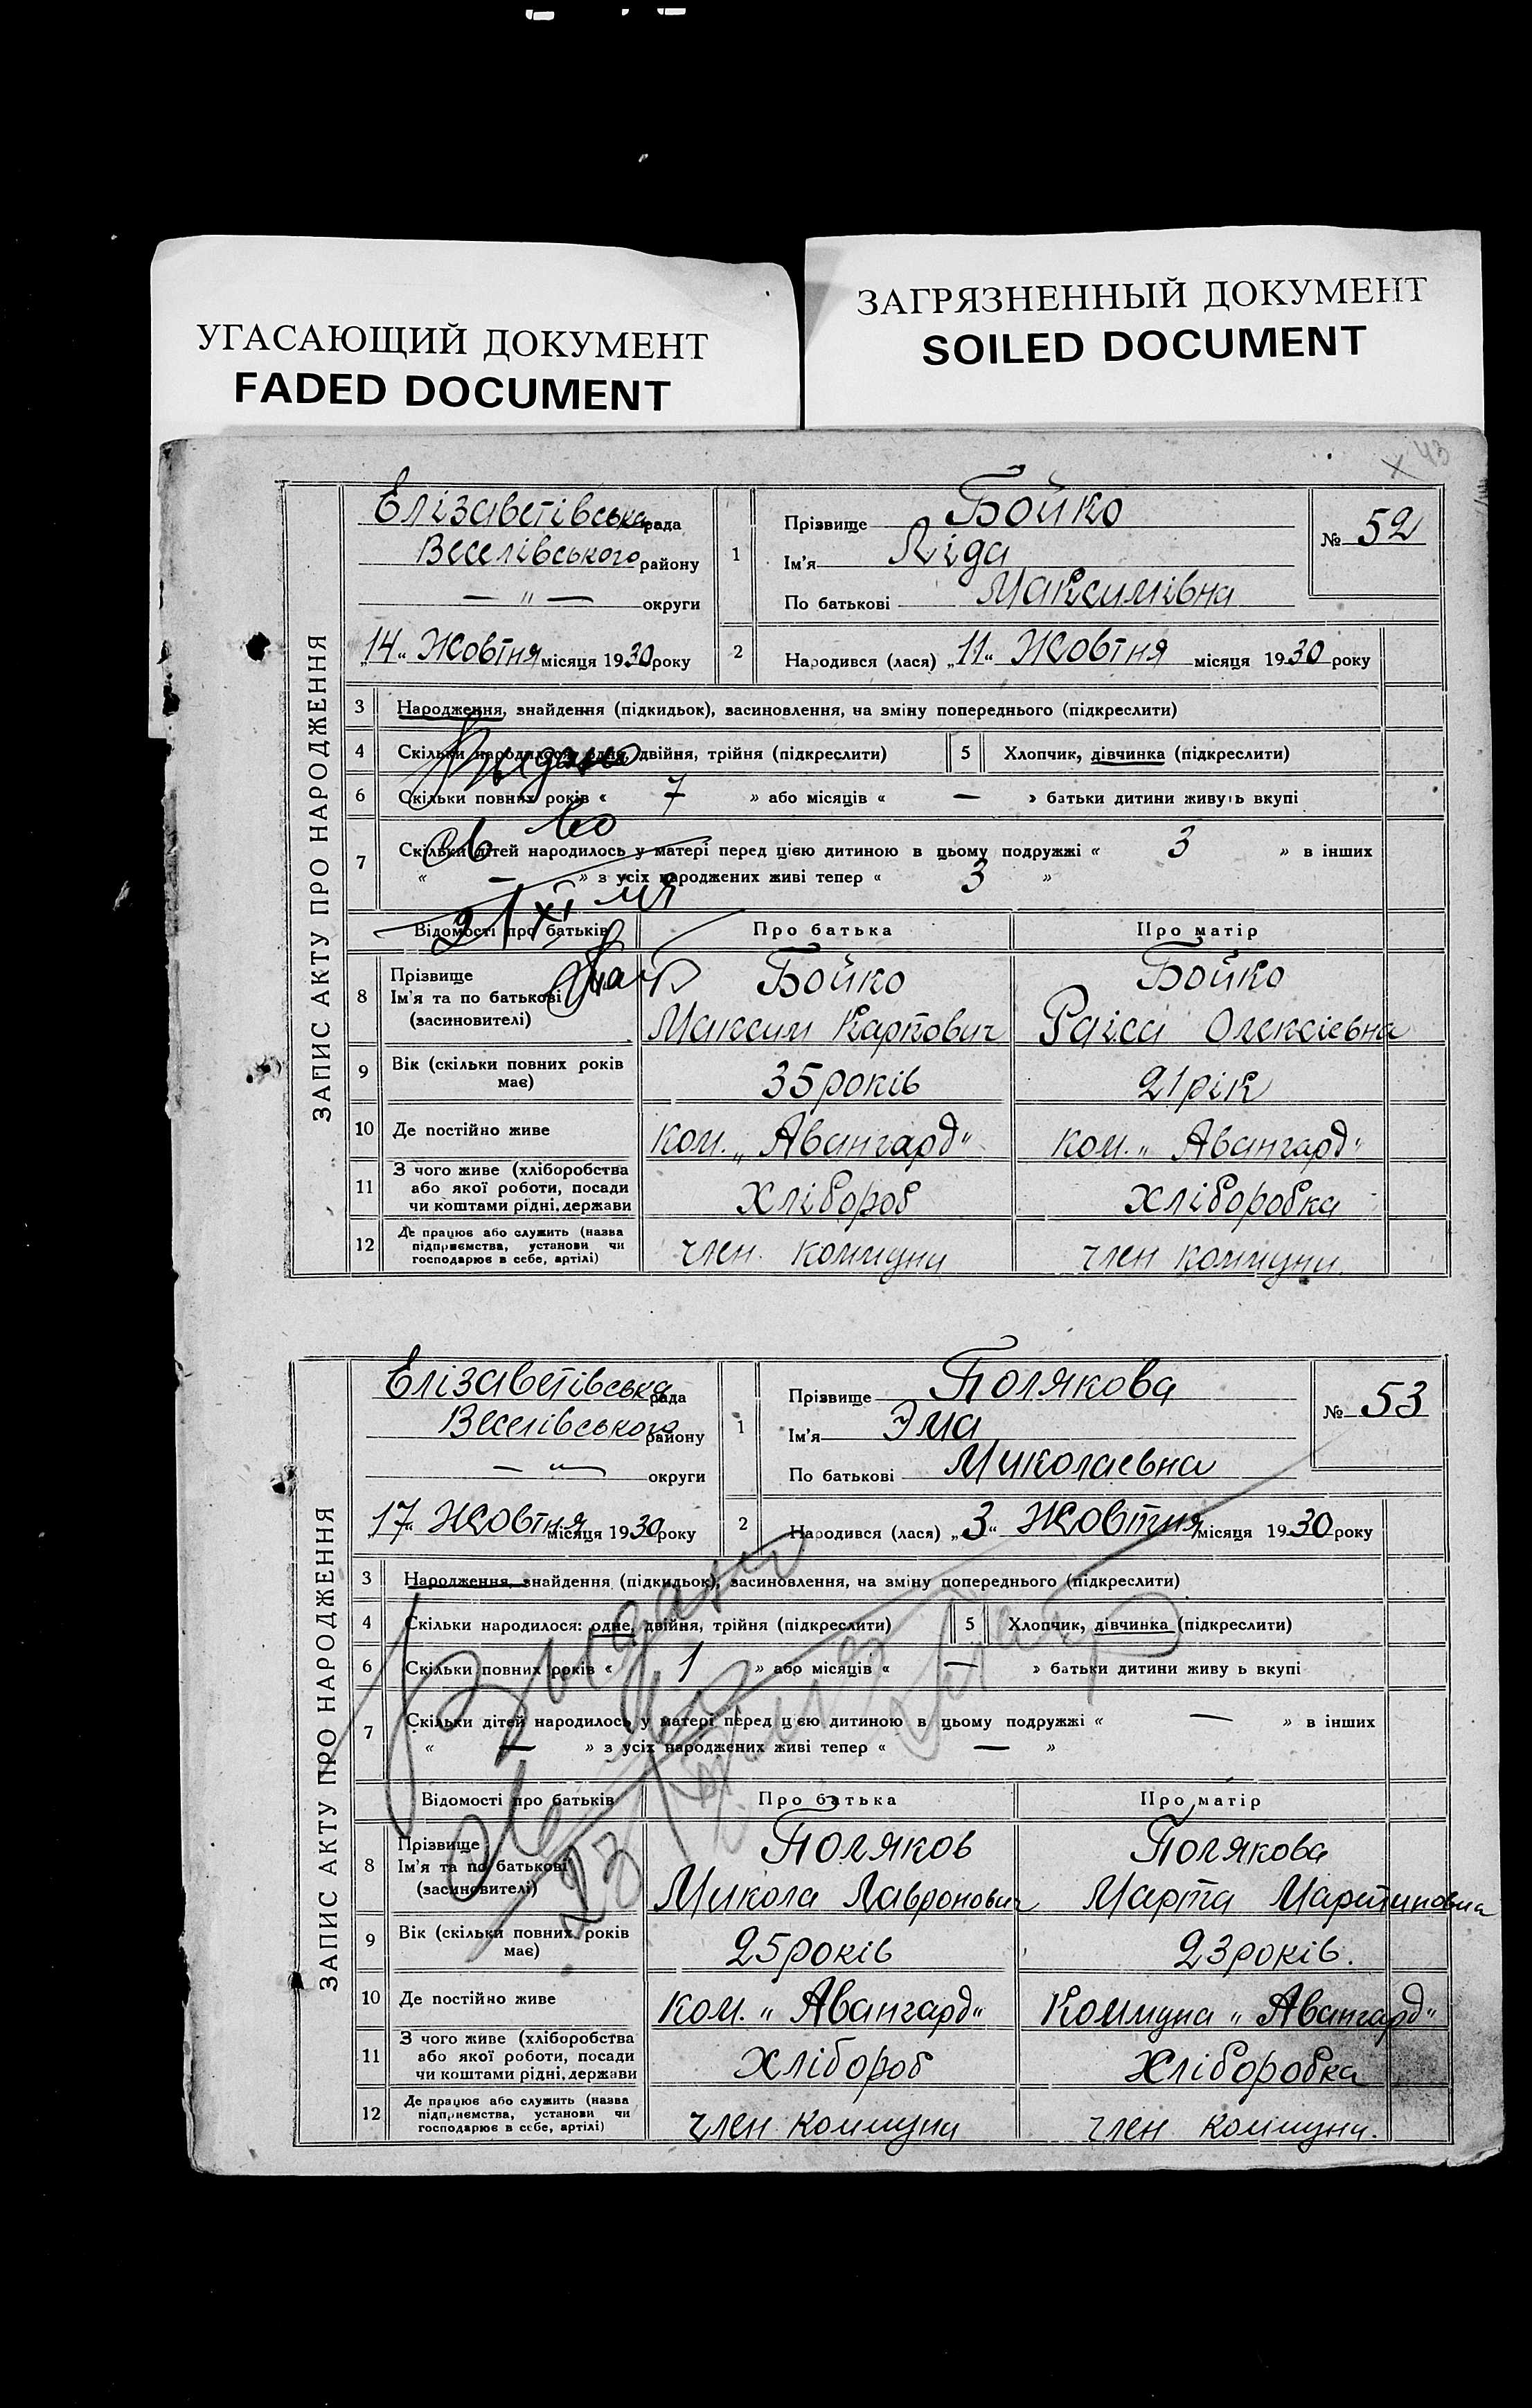 УГАСАЮЩИЙ ДОКУМЕНТ
FADED DOCUMENT
ЗАГРЯЗНЕННЫЙ ДОКУМЕНТ
SOILED DOCUMENT
43
ЗАПИС АКТУ ПРО НАРОДЖЕННЯ
Елізаветівська рада
Веселівського району
— " — округи
„14“ Жовтня місяця 1930 року
1 Прізвище Бойко
Ім'я Ліда
По батькові Максимівна
№ 52
2 Народився (лася) „11“ Жовтня місяця 1930 року
3 Народження, знайдення (підкидьок), засиновлення, на зміну попереднього (підкреслити)
4 Скільки народилося: одне, двійня, трійня (підкреслити) 5 Хлопчик, дівчинка (підкреслити)
Видано
6 Скільки повних років « 7 » або місяців « — » батьки дитини живуть вкупі
7 Скільки дітей народилось у матері перед цією дитиною в цьому подружжі « 3 » в інших
« — » з усіх народжених живі тепер « 3 »
21/XI
Відомості про батьків Про батька Про матір
8 Прізвище Бойко Бойко
Ім'я та по батькові Максим Карпович Раіса Олексіевна
(засиновителі)
9 Вік (скільки повних років має) 35 років 21 рік
10 Де постійно живе ком. „Авангард“ ком. „Авангард“
11 З чого живе (хліборобства
або якої роботи, посади
чи коштами рідні, держави Хлібороб Хліборобка
12 Де працює або служить (назва
підприємства, установи чи
господарює в себе, артілі) член коммуни член коммуни.
ЗАПИС АКТУ ПРО НАРОДЖЕННЯ
Елізаветівська рада
Веселівського району
— " — округи
„17“ Жовтня місяця 1930 року
1 Прізвище Полякова
Ім'я Эма
По батькові Миколаевна
№ 53
2 Народився (лася) „3“ Жовтня місяця 1930 року
3 Народження, знайдення (підкидьок), засиновлення, на зміну попереднього (підкреслити)
4 Скільки народилося: одне, двійня, трійня (підкреслити) 5 Хлопчик, дівчинка (підкреслити)
Видано
6 Скільки повних років « 1 » або місяців « — » батьки дитини живу ь вкупі
7 Скільки дітей народилось у матері перед цією дитиною в цьому подружжі « — » в інших
« — » з усіх народжених живі тепер « — »
Відомості про батьків Про батька Про матір
8 Прізвище Поляков Полякова
Ім'я та по батькові Микола Лавронович Марта Мартиновна
(засиновителі)
9 Вік (скільки повних років має) 25 років 23 років.
10 Де постійно живе ком. „Авангард“ Коммуна „Авангард“
11 З чого живе (хліборобства
або якої роботи, посади
чи коштами рідні, держави Хлібороб Хліборобка
12 Де працює або служить (назва
підприємства, установи чи
господарює в себе, артілі) член коммуни член коммуни.